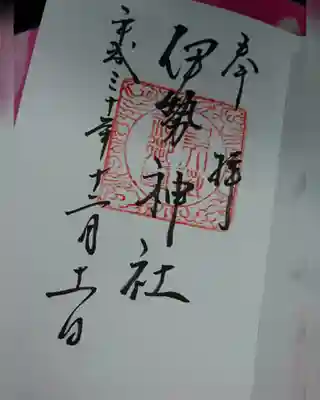 奉拝
伊勢神社
平成三十年十二月十一日